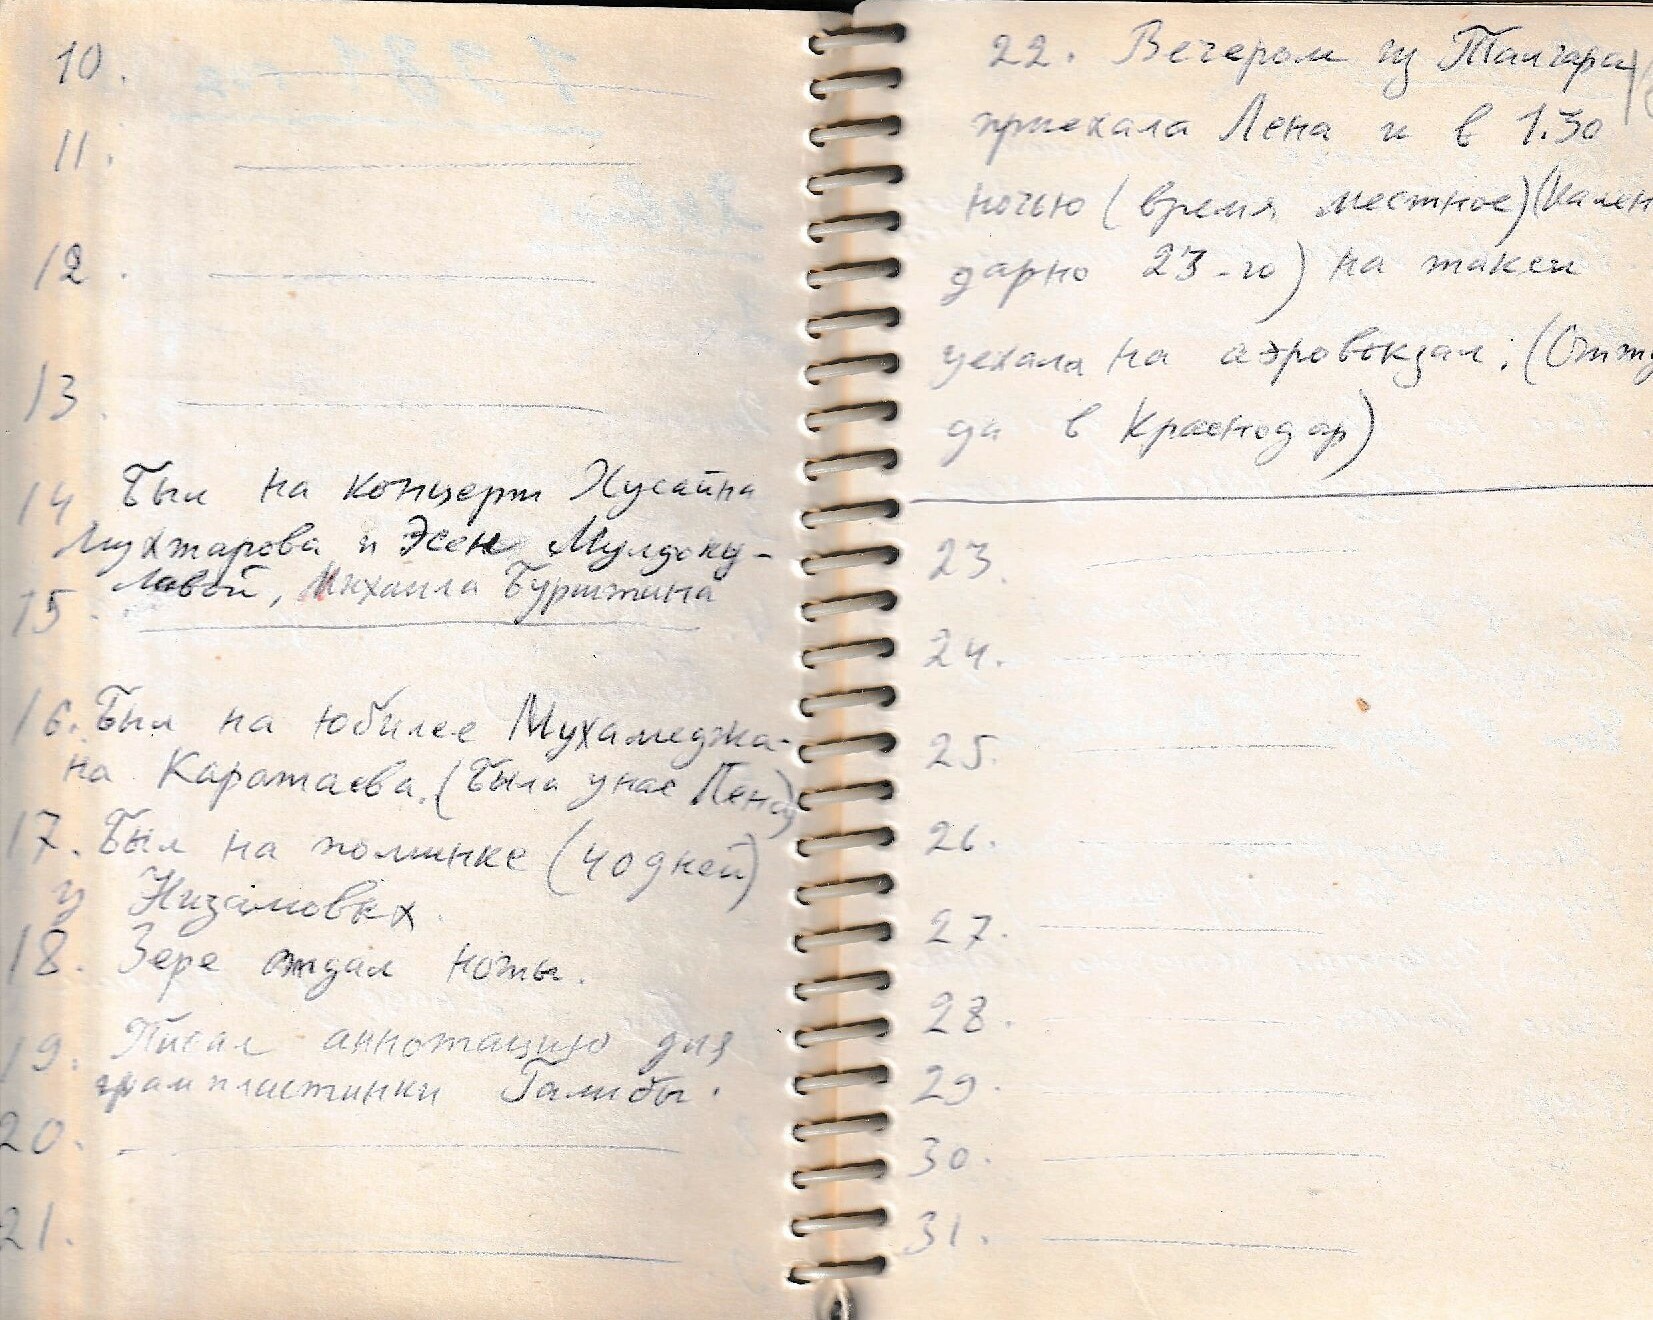 10.
11.
12.
13.
14 Был на концерт Хусайна
Мухтарова и Эсен Мулдоку-
ловой, Михаила Бурштина
15.
16. Был на юбилее Мухамеджа-
на Каратаева. (Была у нас Лена)
17. Был на поминке (40 дней)
у Низамовых.
18. Зере отдал ноты.
19. Писал аннотацию для
грампластинки Галибы.
20.
21.
22. Вечером из Талгара
приехала Лена и в 1.30
ночью (время местное) (кален
дарно 23-го) на такси
уехала на аэровокзал. (Отту
да в Краснодар)
23.
24.
25.
26.
27.
28.
29.
30.
31.